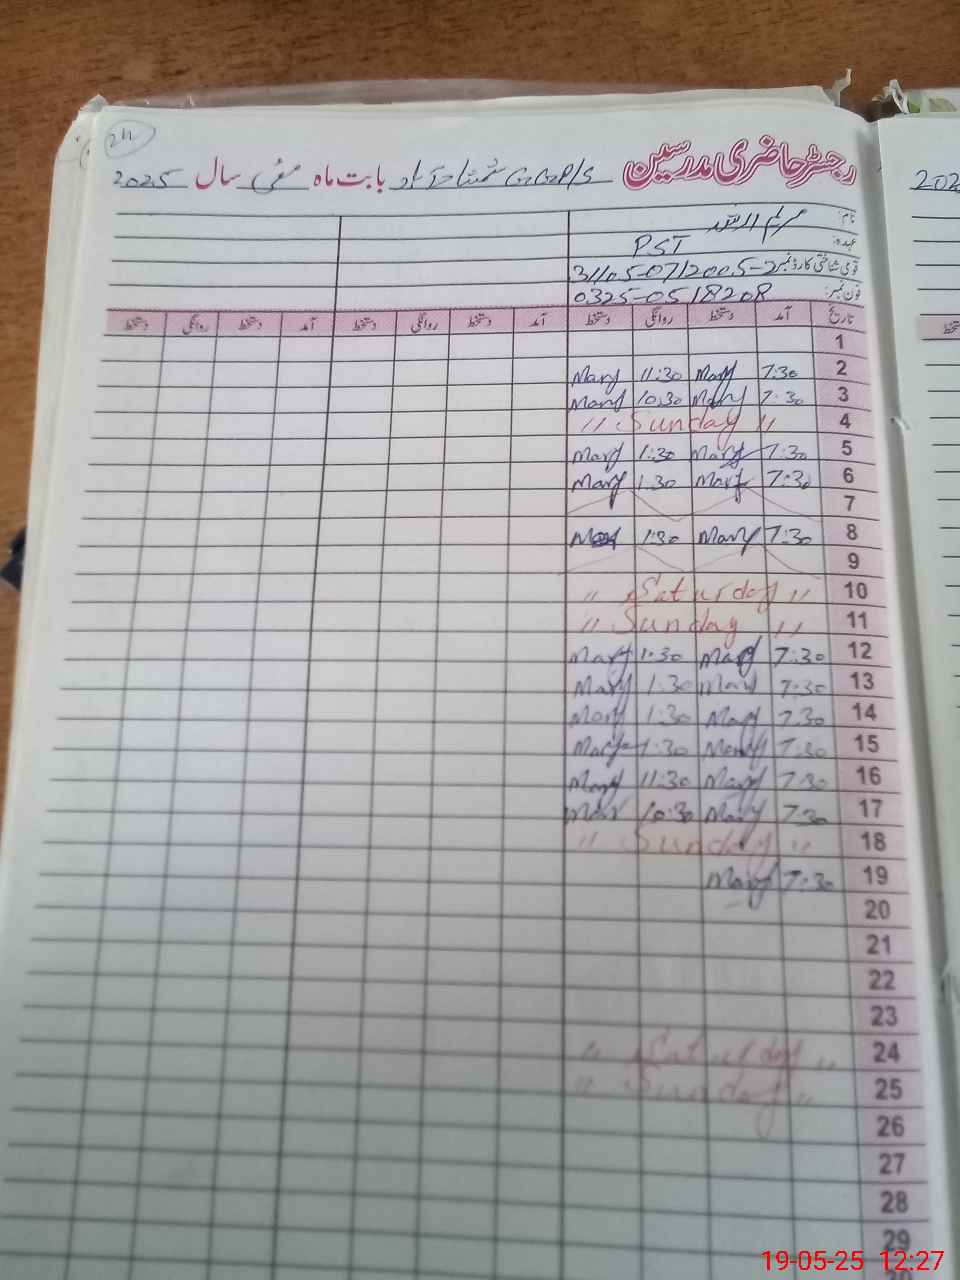 24
رجسٹر حاضری مدرسین G.G.P/S بابت ماہ مئی سال 2025
202
نام:
عہدہ: PST
قومی شناختی کارڈ نمبر 31105-0712005-2
فون نمبر: 0325-0518208
تاریخ آمد دستخط روانگی دستخط آمد دستخط روانگی دستخط
1
2 7:30 Mary 11:30 Mary
3 7:30 Mary 10:30 Mary
4 " Sunday "
5 7:30 Mary 1:30 Mary
6 7:30 Mary 1:30 Mary
7
8 7:30 Mary 1:30
9
10 " Saturday "
11 " Sunday "
12 7:30 Mary 1:30 Mary
13 7:30 Mary 1:30 Mary
14 7:30 Mary 1:30 Mary
15 7:30 Mary 1:30 Mary
16 7:30 Mary 11:30 Mary
17 7:30 Mary 10:30 Mary
18 " Sunday "
19 7:30 Mary
20
21
22
23
24 " Saturday "
25 " Sunday "
26
27
28
29
19-05-25 12:27